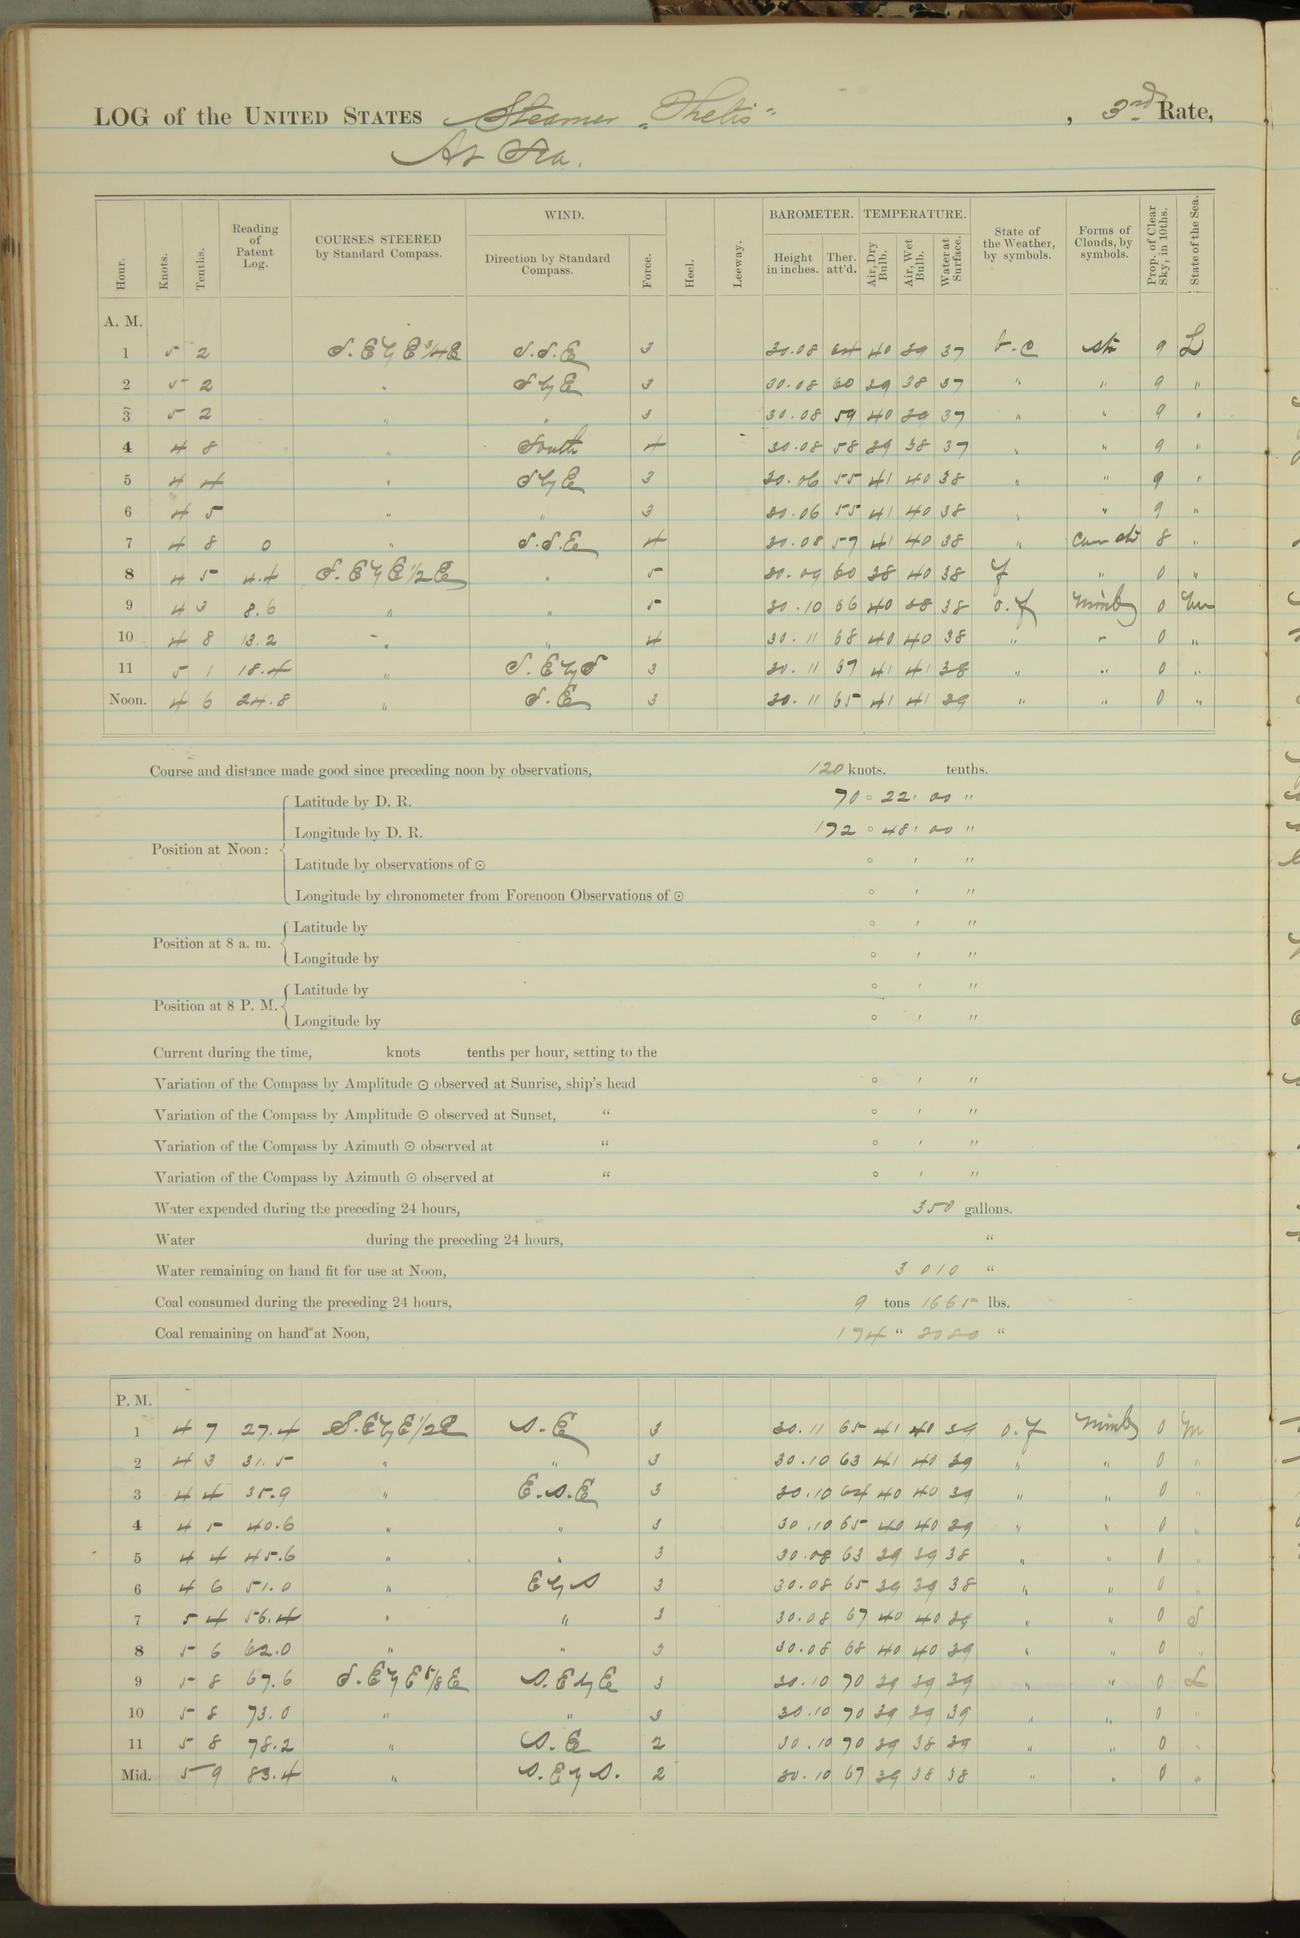 LOG of the UNITED STATES Steamer "Thetis", 3rd Rate,
At Sea.
Hour. Knots. Tenths. Reading of Patent Log. COURSES STEERED by Standard Compass. WIND. Direction by Standard Compass. Force. Heel. Leeway. BAROMETER. Height in inches. Ther. att'd. TEMPERATURE. Air, Dry Bulb. Air, Wet Bulb. Water at Surface. State of the Weather, by symbols. Forms of Clouds, by symbols. Prop. of Clear Sky, in 10ths. State of the Sea.
A. M.
1 5 2 S.E by E 3/4 E S.S.E 3 30.08 64 40 39 37 b.c str 9 L
2 5 2 " S by E 3 30.08 60 39 38 37 " " 9 "
3 5 2 " " 3 30.08 59 40 39 37 " " 9 "
4 4 8 " South 4 30.08 58 39 38 37 " " 9 "
5 4 4 " S by E 3 30.06 55 41 40 38 " " 9 "
6 4 5 " " 3 30.06 55 41 40 38 " " 9 "
7 4 8 0 " S.S.E 4 30.08 57 41 40 38 " Cum str 8 "
8 4 5 4.4 S.E by E 1/2 E " 5 30.09 60 38 40 38 f " 0 "
9 4 3 8.6 " " 5 30.10 66 40 38 38 o.f Nimb 0 m
10 4 8 13.2 " " 4 30.11 68 40 40 38 " " 0 "
11 5 1 18.4 " S.E by S 3 30.11 67 41 41 38 " " 0 "
Noon. 4 6 24.8 " S.E 3 30.11 65 41 41 39 " " 0 "
Course and distance made good since preceding noon by observations, 120 knots. tenths.
Position at Noon: Latitude by D. R. 70 ° 22 ' 00 "
Longitude by D. R. 172 ° 48 ' 00 "
Latitude by observations of ⊙ ° ' "
Longitude by chronometer from Forenoon Observations of ⊙ ° ' "
Position at 8 a. m. Latitude by ° ' "
Longitude by ° ' "
Position at 8 P. M. Latitude by ° ' "
Longitude by ° ' "
Current during the time, knots tenths per hour, setting to the
Variation of the Compass by Amplitude ⊙ observed at Sunrise, ship's head ° ' "
Variation of the Compass by Amplitude ⊙ observed at Sunset, " ° ' "
Variation of the Compass by Azimuth ⊙ observed at " ° ' "
Variation of the Compass by Azimuth ⊙ observed at " ° ' "
Water expended during the preceding 24 hours, 350 gallons.
Water during the preceding 24 hours, "
Water remaining on hand fit for use at Noon, 3 010 "
Coal consumed during the preceding 24 hours, 9 tons 1665 lbs.
Coal remaining on hand at Noon, 174 " "
P. M.
1 4 7 27.4 S.E by E 1/2 E S.E 3 30.11 65 41 40 39 o.f Nimb 0 m
2 4 3 31.5 " " 3 30.10 63 41 40 39 " " 0 "
3 4 4 35.9 " E.S.E 3 30.10 64 40 40 39 " " 0 "
4 4 5 40.6 " " 3 30.10 65 40 40 39 " " 0 "
5 4 4 45.6 " " 3 30.08 63 39 39 38 " " 0 "
6 4 6 51.0 " E by S 3 30.08 65 39 39 38 " " 0 "
7 5 4 56.4 " " 3 30.08 67 40 40 39 " " 0 S
8 5 6 62.0 " " 3 30.08 68 40 40 39 " " 0 "
9 5 8 67.6 S.E by E 5/8 E S.E by E 3 30.10 70 39 39 39 " " 0 L
10 5 8 73.0 " " 3 30.10 70 39 39 39 " " 0 "
11 5 8 78.2 " S.E 2 30.10 70 39 38 39 " " 0 "
Mid. 5 9 83.4 " S.E by S. 2 30.10 67 39 38 38 " " 0 "